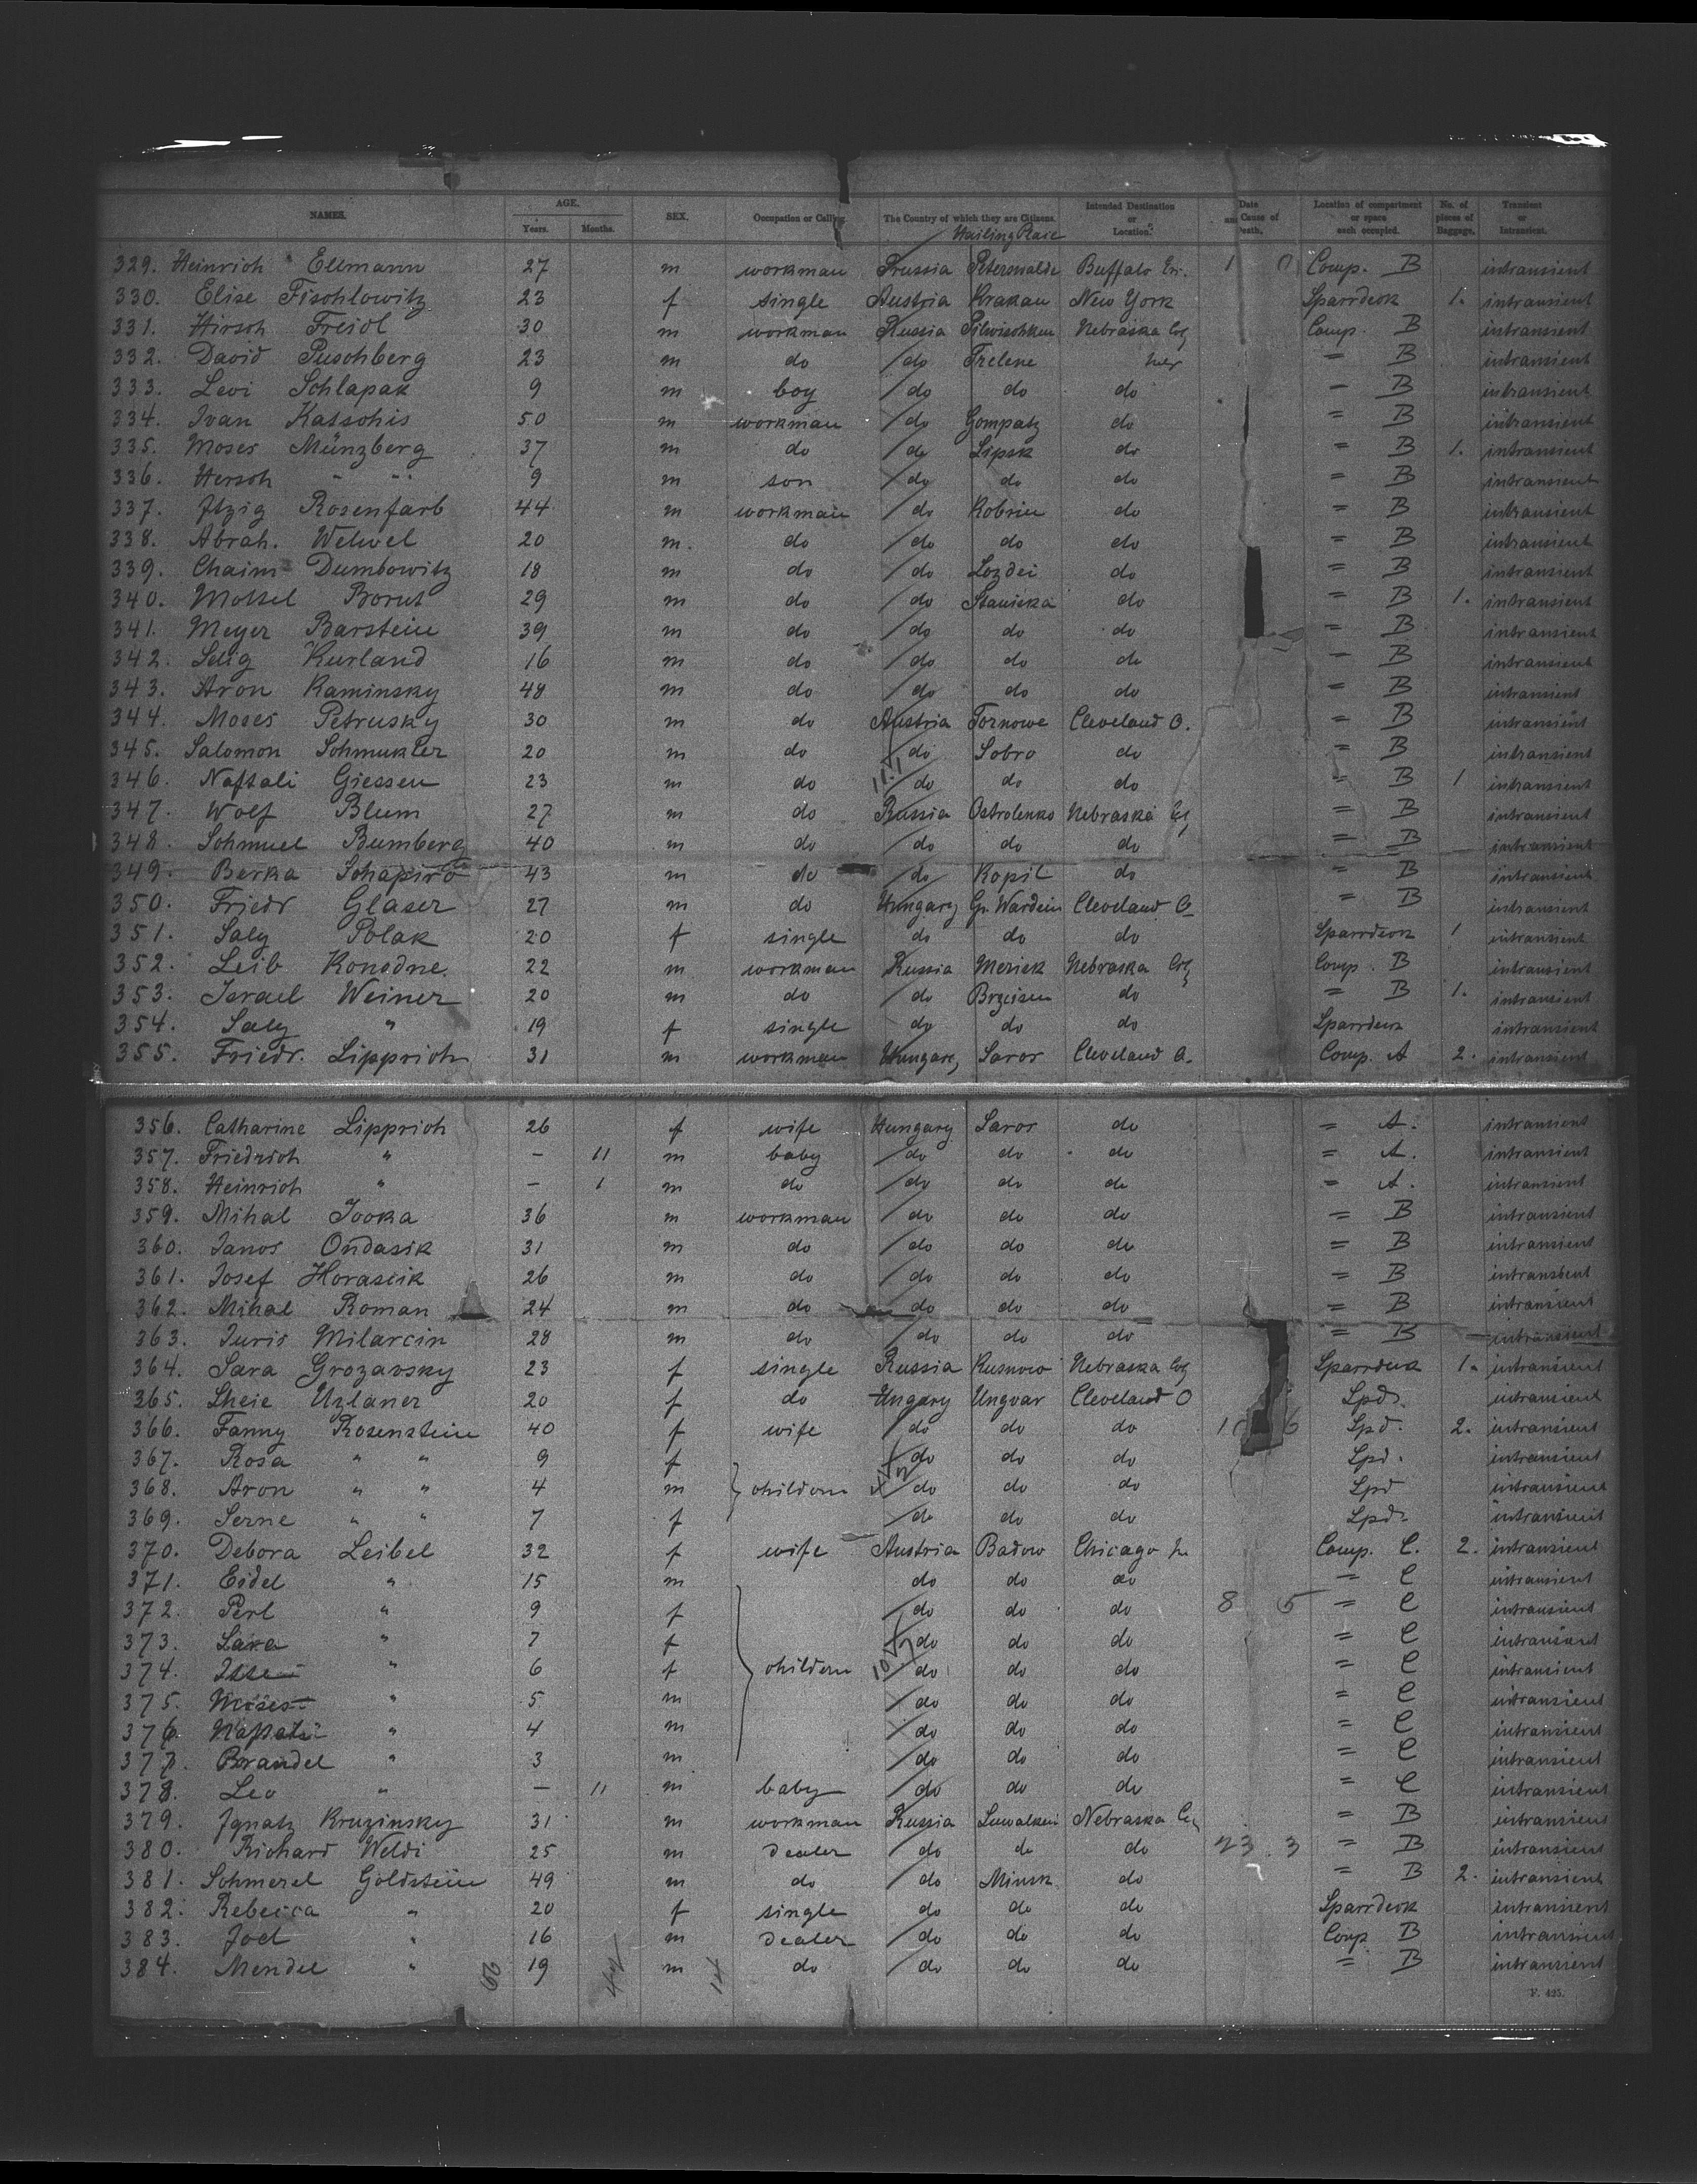 NAMES. AGE. Years. Months. SEX. Occupation or Calling. The Country of which they are Citizens. Hailing Place Intended Destination or Location. Date and Cause of Death. Location of compartment or space each occupied. No. of pieces of Baggage. Transient or Intransient.
329. Heinrich Ellmann 27 m workman Prussia Peterswalde Buffalo 1 Comp. B intransient
330. Elise Fischlowitz 23 f single Austria Krakau New York Sparrdeck 1. intransient
331. Hirsch Freidl 30 m workman Russia Pilwischken Nebraska Comp. B intransient
332. David Puschberg 23 m do do Trelene = B intransient
333. Levi Schlapak 9 m boy do do do = B intransient
334. Ivan Katschis 50 m workman do Gompatz do = B intransient
335. Moses Münzberg 37 m do do Lipsk do = B 1. intransient
336. Hersch " " 9 m son do do do = B intransient
337. Itzig Rosenfarb 44 m workman do Kobrin do = B intransient
338. Abrah. Welwel 20 m. do do do do = B intransient
339. Chaim Dumbowitz 18 m do do Lozdei do = B intransient
340. Mottel Borut 29 m do do Stauiska do = B 1. intransient
341. Meyer Barstein 39 m do do do do = B intransient
342. Selig Kurland 16 m do do do do = B intransient
343. Aron Kaminsky 48 m do do do do = B intransient
344. Moses Petrusky 30 m do Austria Tornowe Cleveland O. = B intransient
345. Salomon Schmukler 20 m do do Sobro do = B intransient
346. Naftali Giessen 23 m do do do do = B 1 intransient
347. Wolf Blum 27 m do Russia Ostrolenko Nebraska = B intransient
348. Schmuel Bumberg 40 m do do do do = B intransient
349. Berka Schapiro 43 m do do Kopil do = B intransient
350. Friedr Glaser 27 m do Hungary Gr. Wardein Cleveland O = B intransient
351. Saly Polak 20 f single do do do Sparrdeck 1 intransient
352. Leib Konodne. 22 m workman Russia Meriek Nebraska Comp. B intransient
353. Israel Weiner 20 m do do Brzeisen do = B 1. intransient
354. Saly " 19 f single do do do Sparrdeck intransient
355. Friedr. Lipprich 31 m workman Hungary Saros Cleveland O. Comp. A 2. intransient
356. Catharine Lipprich 26 f wife Hungary Saros do = A. intransient
357. Friedrich " - 11 m baby do do do = A. intransient
358. Heinrich " - 1 m do do do do = A. intransient
359. Mihal Jocka 36 m workman do do do = B intransient
360. Janos Ondasik 31 m do do do do = B intransient
361. Josef Horascik 26 m do do do do = B intransient
362. Mihal Roman 24 m do do do do = B intransient
363. Juris Milarcin 28 m do do do do = B intransient
364. Sara Grozavsky 23 f single Russia Kusnowo Nebraska Sparrdeck 1. intransient
365. Sheie Uzlaner 20 f do Ungary Ungvar Cleveland O Spd. intransient
366. Fanny Rosenstein 40 f wife do do do Spd. 2. intransient
367. Rosa " " 9 f do do do Spd. intransient
368. Aron " " 4 m childern do do do Spd intransient
369. Serne " " 7 f do do do Spd. intransient
370. Debora Leibel 32 f wife Austria Badow Chicago Comp. C. 2. intransient
371. Eidel " 15 m do do do = C intransient
372. Perl " 9 f do do do 8 5 = C intransient
373. Sara " 7 f do do do = C intransient
374. Itte " 6 f childern do do do = C intransient
375. Moses " 5 m do do do = C intransient
376. Naftali " 4 m do do do = C intransient
377. Brandel " 3 m do do do = C intransient
378. Leo " - 11 m baby do do do = C intransient
379. Ignatz Kruzinsky 31 m workman Russia Suwalken Nebraska = B intransient
380. Richard Weldi 25 m Dealer do do do 23 3 = B intransient
381. Schmerel Goldstein 49 m do do Minsk do = B 2. intransient
382. Rebecca " 20 f single do do do Sparrdeck intransient
383. Joel " 16 m Dealer do do do Comp B intransient
384. Mendel " 19 m do do do do = B intransient
66 44 14
F. 425.